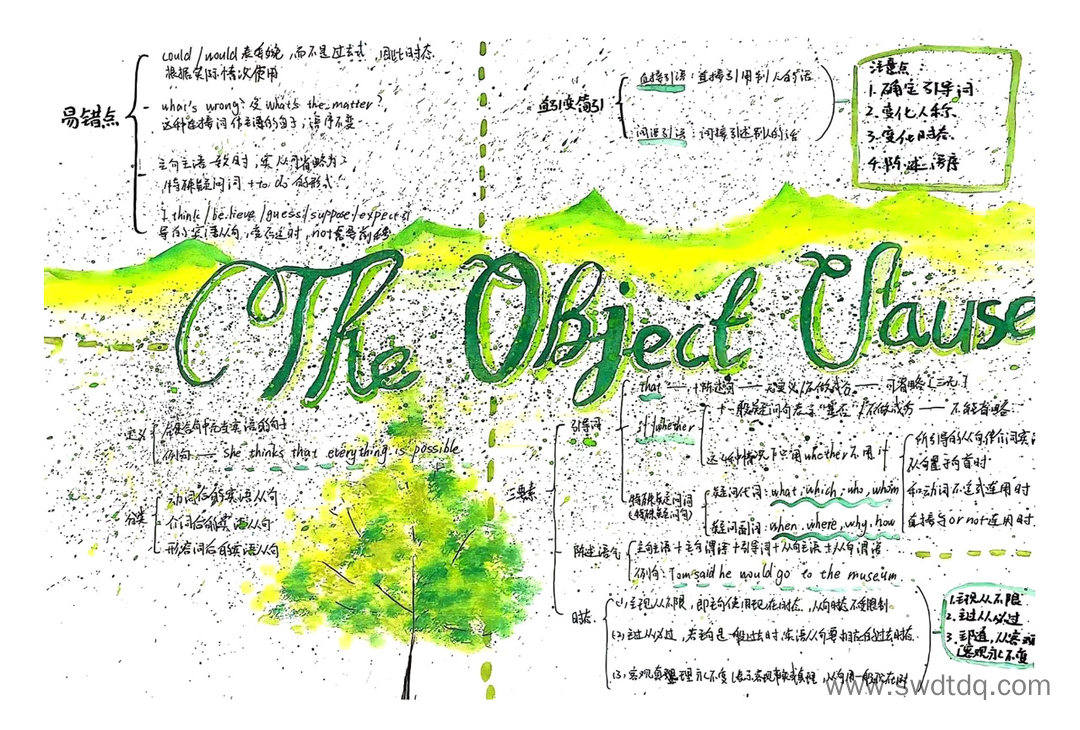 易错点
could / would 表委婉，而不是过去式，因此时态
根据实际情况使用
what's wrong? 及 what's the matter?
这种连接词作主语的句子，语序不变
主句主语一致时，宾从可省略为
"特殊疑问词 + to do 的形式"
I think / believe / guess / suppose / expect
导的宾语从句，变否定时，not
直接引语：直接引用别人的话
间接引语：间接引述别人的话
注意点：
1. 确定引导词
2. 变化人称
3. 变化时态
4. 陈述语序
The Object Clause
定义
例句 — she thinks that everything is possible
分类
动词后的宾语从句
介词后的宾语从句
形容词后的宾语从句
三要素
引导词
that — + 陈述句 — 无意义 / 不做成分 — 可省略
if / whether
+ 一般疑问句 表示"是否" / 不做成分 — 不能省略
这4种情况下只用whether不用if
从句置于句首时
和动词不定式连用时
直接与or not连用时
特殊疑问词
(特殊疑问句)
疑问代词：what, which, who, whom
疑问副词：when, where, why, how
陈述语气
主句主语 + 主句谓语 + 引导词 + 从句主语 + 从句谓语
例句：Tom said he would go to the museum
时态
(1) 主现从不限，即主句使用现在时态，从句时态不受限制
(2) 主过从必过，若主句是一般过去时，宾语从句要用相应的过去时态
(3) 客观真理永不变
1. 主现从不限
2. 主过从必过
3.
客观永不变
www.swdtdq.com